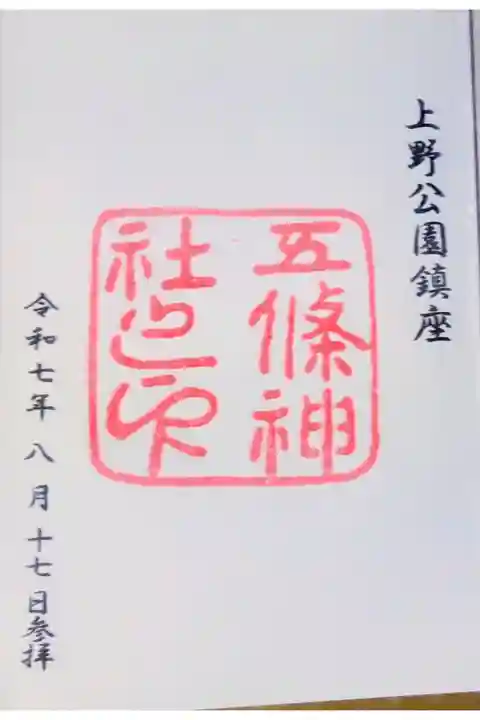 上野公園鎮座
五條神
社之印
令和七年八月十七日参拝